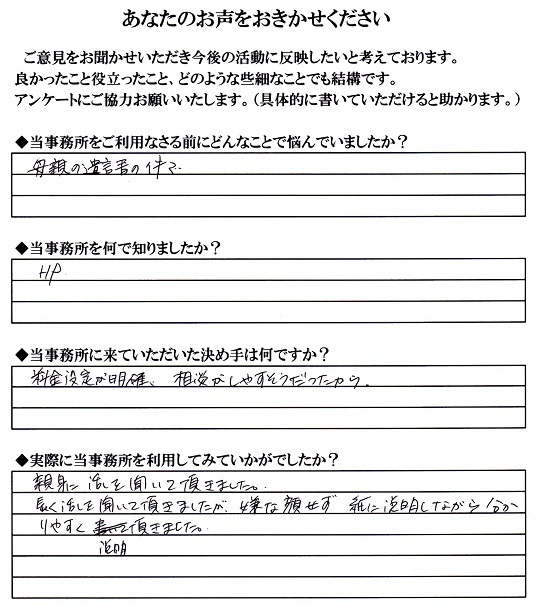 あなたのお声をおきかせください
ご意見をお聞かせいただき今後の活動に反映したいと考えております。
良かったこと役立ったこと、どのような些細なことでも結構です。
アンケートにご協力お願いいたします。（具体的に書いていただけると助かります。）
◆当事務所をご利用なさる前にどんなことで悩んでいましたか？
母親の遺言書の件で
◆当事務所を何で知りましたか？
HP
◆当事務所に来ていただいた決め手は何ですか？
料金設定が明確、相談がしやすそうだったから。
◆実際に当事務所を利用してみていかがでしたか？
親身に話しを聞いて頂きました。
長く話しを聞いて頂きましたが、嫌な顔せず 紙に説明しながら分か
りやすく 頂きました。
説明